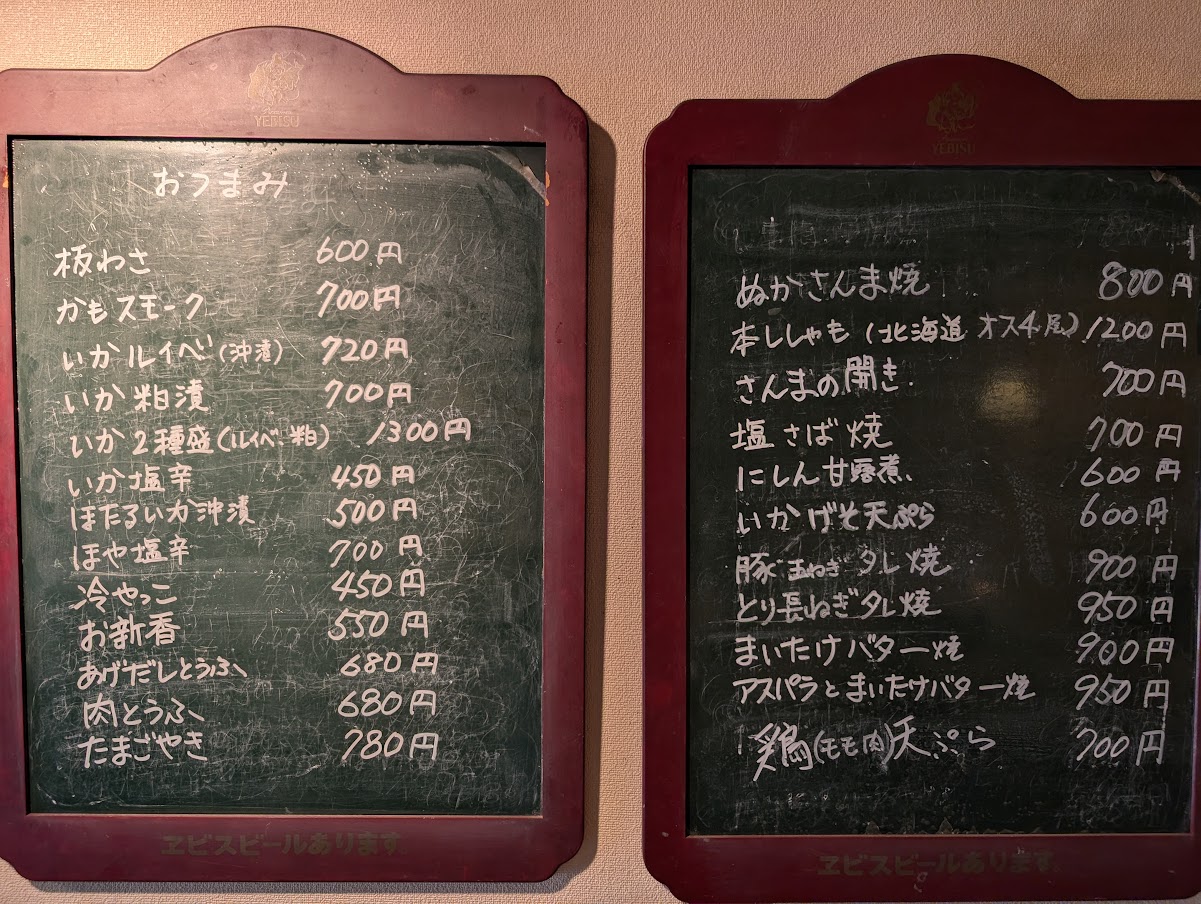 YEBISU
おつまみ
板わさ 600円
かもスモーク 700円
いかルイベ(沖漬) 720円
いか粕漬 700円
いか2種盛(ルイベ・粕) 1300円
いか塩辛 450円
ほたるいか沖漬 500円
ほや塩辛 700円
冷やっこ 450円
お新香 550円
あげだしとうふ 680円
肉とうふ 680円
たまごやき 780円
ヱビスビールあります。
YEBISU
ぬかさんま焼 800円
本ししゃも(北海道 オス4尾) 1200円
さんまの開き 700円
塩さば焼 700円
にしん甘露煮 600円
いかげそ天ぷら 600円
豚玉ねぎタレ焼 900円
とり長ねぎタレ焼 950円
まいたけバター焼 900円
アスパラとまいたけバター焼 950円
鶏(モモ肉)天ぷら 700円
ヱビスビールあります。